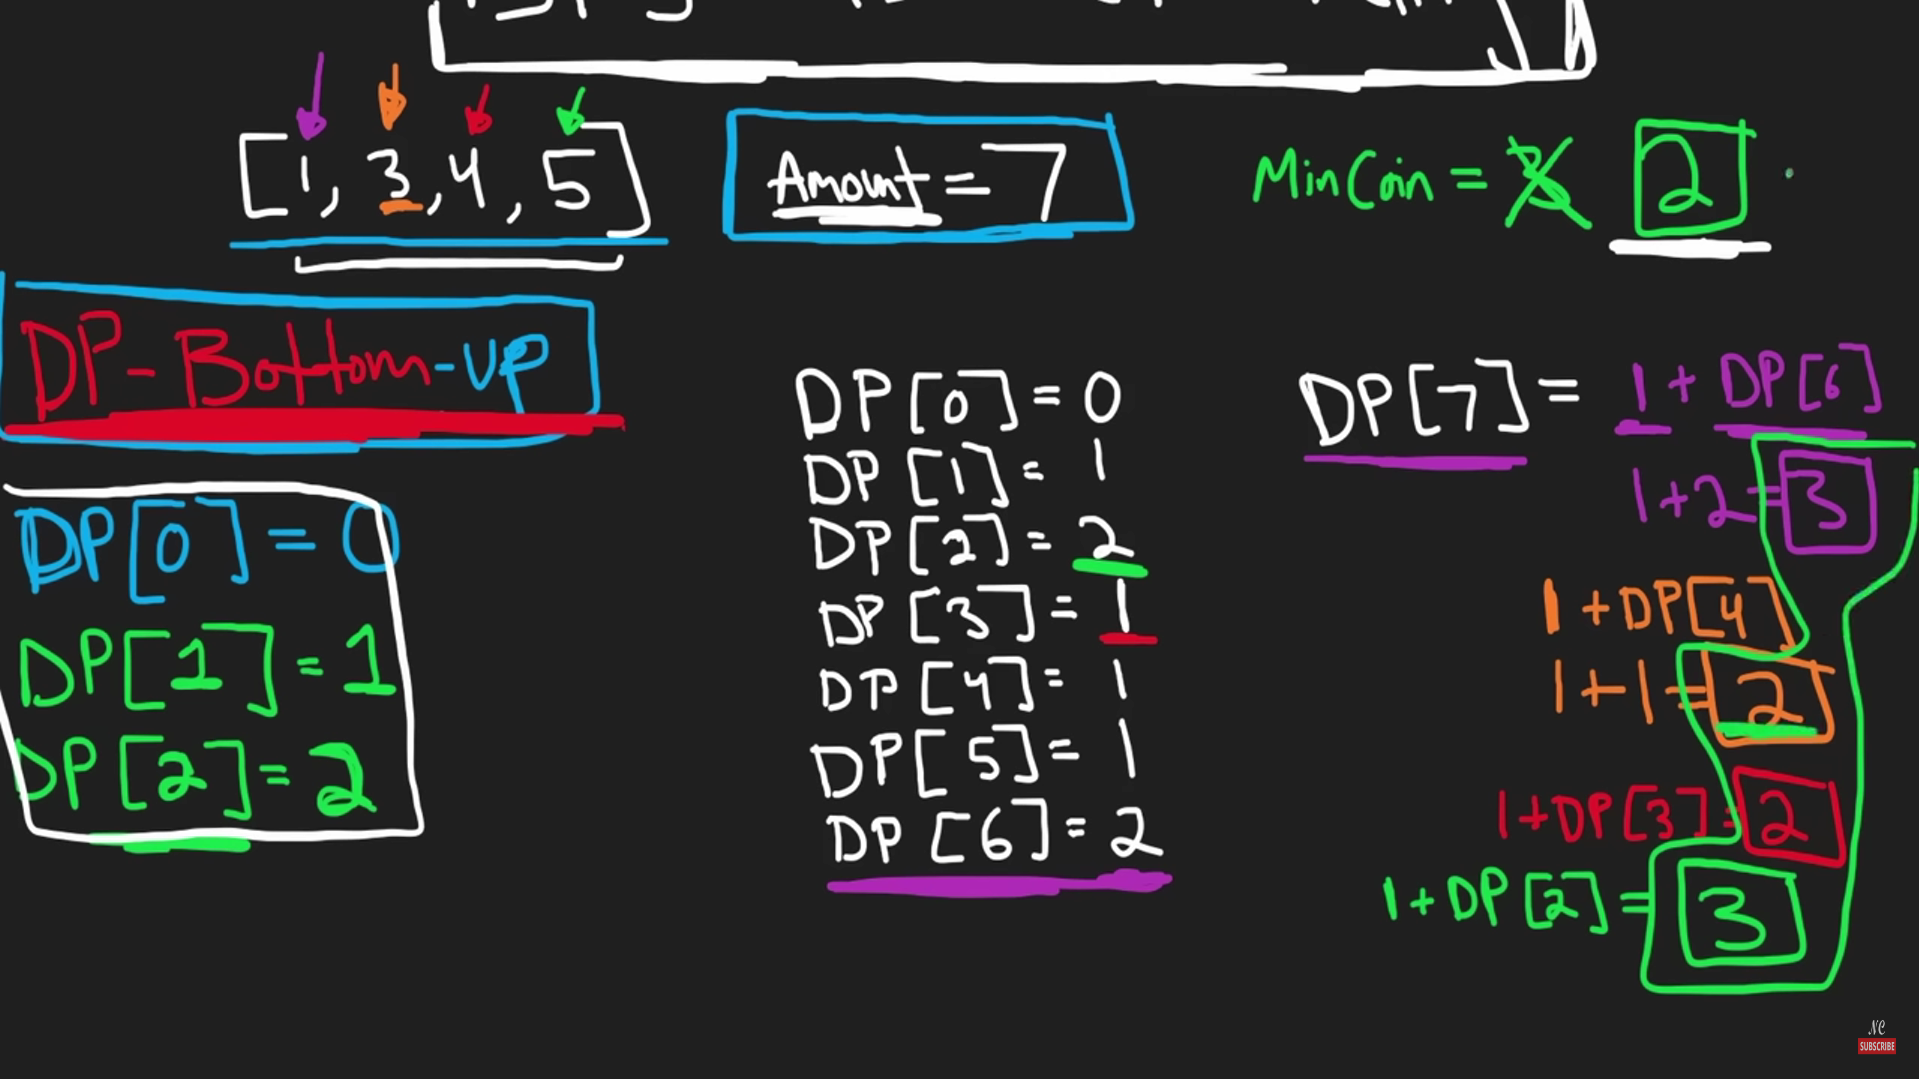 [1, 3, 4, 5]
Amount = 7
MinCoin = 2
DP-Bottom-UP
DP[0] = 0
DP[1] = 1
DP[2] = 2
DP[0] = 0
DP[1] = 1
DP[2] = 2
DP[3] = 1
DP[4] = 1
DP[5] = 1
DP[6] = 2
DP[7] = 1 + DP[6]
1+2=3
1+DP[4]
1+1=2
1+DP[3]=2
1+DP[2]=3
NC
SUBSCRIBE